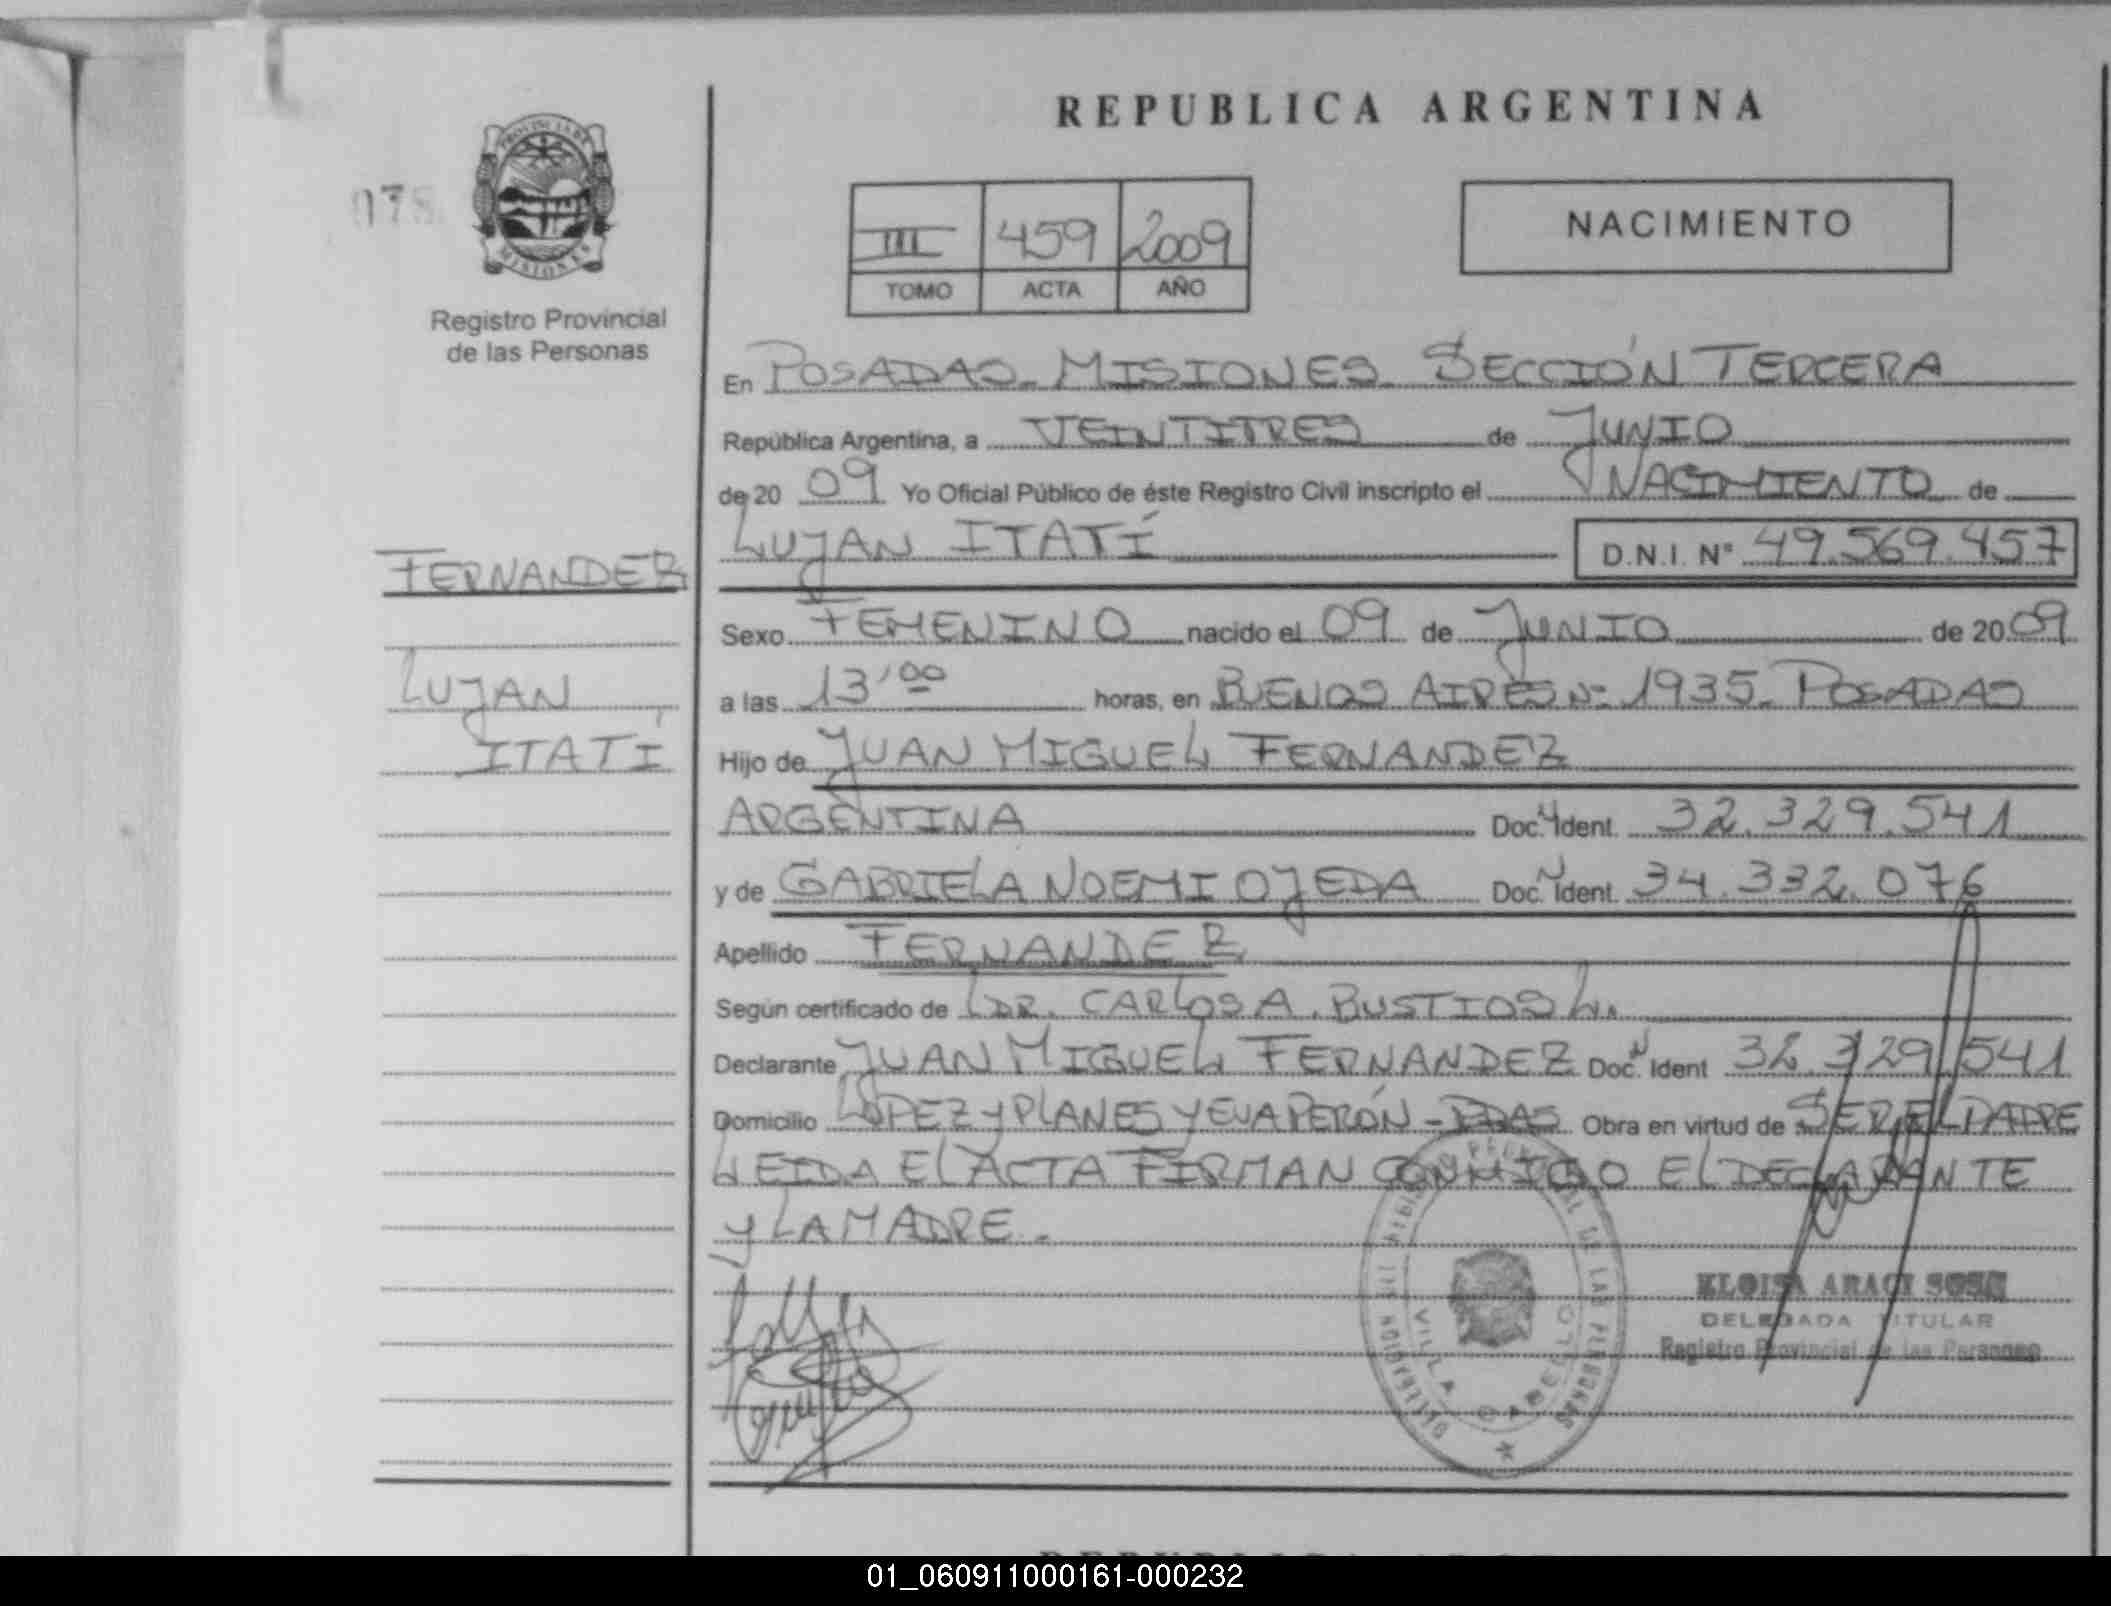 REPUBLICA ARGENTINA
078
PROVINCIA DE
MISIONES
Registro Provincial
de las Personas
III 459 2009
TOMO ACTA AÑO
NACIMIENTO
En POSADAS - MISIONES SECCIÓN TERCERA
República Argentina, a VEINTITRES de JUNIO
de 20 09 Yo Oficial Público de éste Registro Civil inscripto el NACIMIENTO de
LUJAN ITATÍ D.N.I. N° 49.569.457
FERNANDEZ
Sexo FEMENINO nacido el 09 de JUNIO de 20 09
LUJAN
a las 13'00 horas, en BUENOS AIRES Nº 1935 - POSADAS
ITATÍ
Hijo de JUAN MIGUEL FERNANDEZ
ARGENTINA Doc. Ident. 32.329.541
y de GABRIELA NOEMI OJEDA Doc. Ident. 34.332.076
Apellido FERNANDEZ
Según certificado de DR. CARLOS A. BUSTIOS L.
Declarante JUAN MIGUEL FERNANDEZ Doc. Ident 32.329.541
Domicilio LOPEZ Y PLANES Y EVA PERÓN - PDAS Obra en virtud de SER EL PADRE
LEIDA EL ACTA FIRMAN CONMIGO EL DECLARANTE
Y LA MADRE.
VILLA CABELLO
ELOISA ARACI SOSA
DELEGADA TITULAR
Registro Provincial de las Personas
01_060911000161-000232